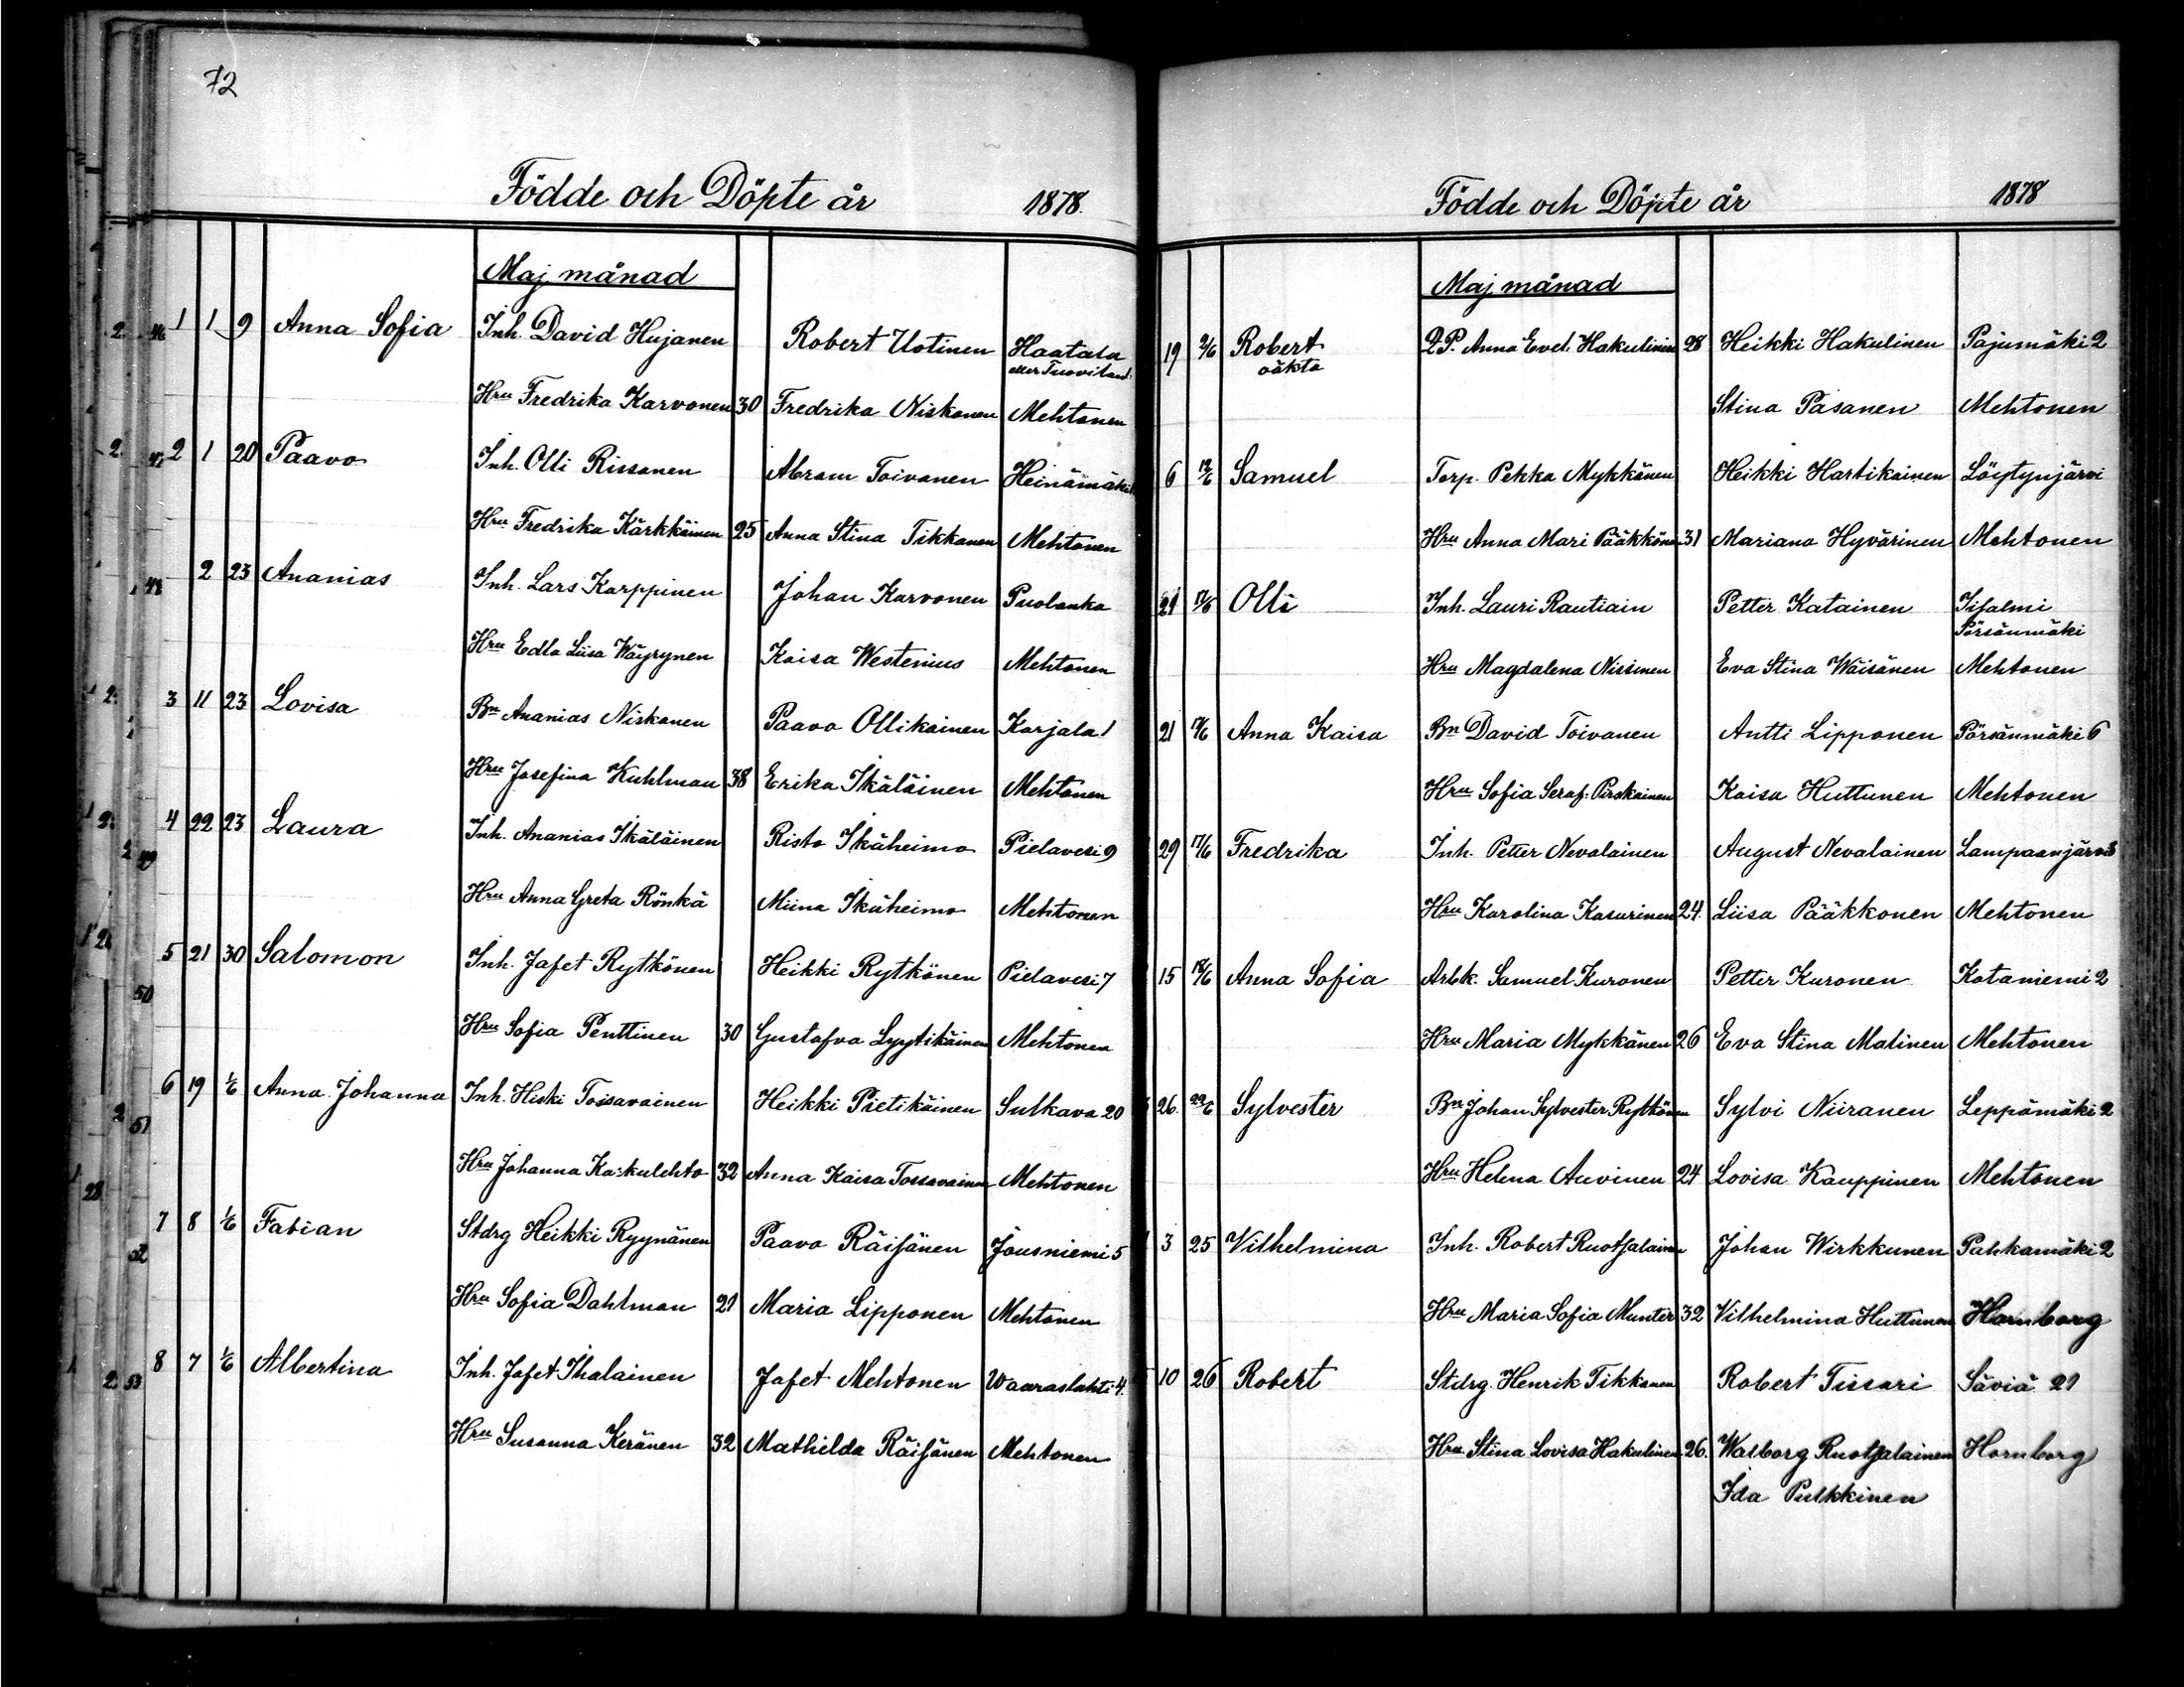 72
Födde och Döpte år 1878.
Maj månad
1 1 9 Anna Sofia Inh. David Hujanen Robert Uotinen Haatala
eller Tuovilanl.
Hru Fredrika Karvonen 30 Fredrika Niskanen Mehtonen
2 1 20 Paavo Inh. Olli Rissanen Abram Toivanen Heinämäki
Hru Fredrika Kärkkäinen 25 Anna Stina Tikkanen Mehtonen
2 23 Ananias Inh. Lars Karppinen Johan Karvonen Puolanka
Hru Edla Liisa Wäyrynen Kaisa Westenius Mehtonen
3 11 23 Lovisa Bn Ananias Niskanen Paavo Ollikainen Karjala 1
Hru Josefina Kuhlman 38 Erika Ikäläinen Mehtonen
4 22 23 Laura Inh. Ananias Ikäläinen Risto Ikäheimo Pielavesi 9
Hru Anna Greta Rönkä Miina Ikäheimo Mehtonen
5 21 30 Salomon Inh. Jafet Rytkönen Heikki Rytkönen Pielavesi 7
Hru Sofia Penttinen 30 Gustafva Lyytikäinen Mehtonen
6 19 1/6 Anna Johanna Inh. Hiski Tossavainen Heikki Pietikäinen Sulkava 20
Hru Johanna Kaskulehto 32 Anna Kaisa Tossavainen Mehtonen
7 8 1/6 Fabian Stdrg Heikki Ryynänen Paavo Räisänen Jousniemi 5
Hru Sofia Dahlman 21 Maria Lipponen Mehtonen
8 7 1/6 Albertina Inh. Jafet Ihalainen Jafet Mehtonen Waaraslahti 4.
Hru Susanna Keränen 32 Mathilda Räisänen Mehtonen
Födde och Döpte år 1878
Maj månad
19 2/6 Robert Q.P. Anna Evel. Hakulinen 28 Heikki Hakulinen Pajumäki 2
oäkta
Stina Pasanen Mehtonen
6 12/6 Samuel Torp. Pekka Mykkänen Heikki Hartikainen Löytynjärvi
Hru Anna Mari Pääkkönen 31 Mariana Hyvärinen Mehtonen
21 17/6 Olli Inh. Lauri Rautiain Petter Katainen Iisalmi
Pörsänmäki
Hru Magdalena Nissinen Eva Stina Wäisänen Mehtonen
21 17/6 Anna Kaisa Bn David Toivanen Antti Lipponen Pörsänmäki 6
Hru Sofia Seraf. Pirskainen Kaisa Huttunen Mehtonen
29 17/6 Fredrika Inh. Petter Nevalainen August Nevalainen Lampaanjärvi 3
Hru Karolina Kasurinen 24. Liisa Pääkkonen Mehtonen
15 18/6 Anna Sofia Arbk. Samuel Kuronen Petter Kuronen Kataniemi 2
Hru Maria Mykkänen 26 Eva Stina Malinen Mehtonen
26. 22/6 Sylvester Bn Johan Sylvester Rytkönen Sylvi Niiranen Leppämäki 2
Hru Helena Auvinen 24 Lovisa Kauppinen Mehtonen
3 25 Vilhelmina Inh. Robert Ruotsalainen Johan Wirkkunen Pahkamäki 2
Hru Maria Sofia Munter 32 Vilhelmina Huttunen Hornborg
10 26 Robert Stdrg. Henrik Tikkanen Robert Tissari Säviä 21
Hru Stina Lovisa Hakulinen 26. Walborg Ruotsalainen Hornborg
Ida Pulkkinen